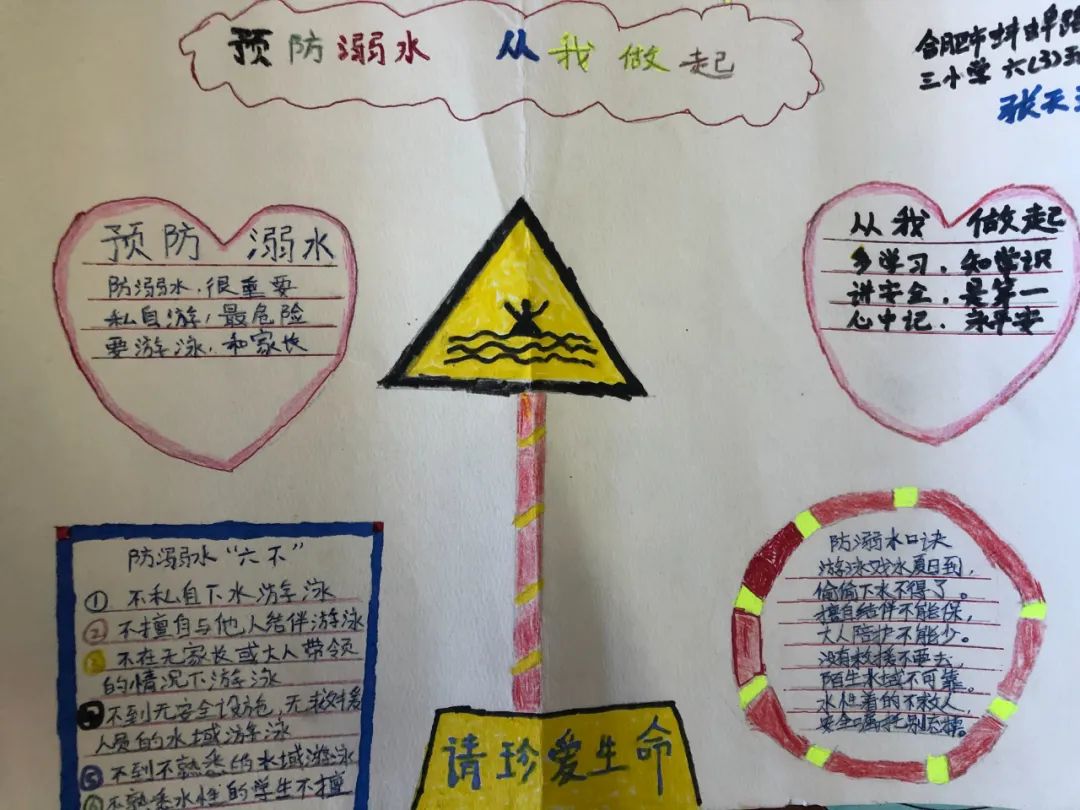 预防溺水 从我做起
合肥市蚌埠路
三小学 六(3)班
张天
预防 溺水
防溺水，很重要
私自游，最危险
要游泳，和家长
从我 做起
多学习，知常识
讲安全，是第一
心中记，永平安
防溺水“六不”
① 不私自下水游泳
② 不擅自与他人结伴游泳
③ 不在无家长或大人带领
的情况下游泳
④ 不到无安全设施，无救援
人员的水域游泳
⑤ 不到不熟悉的水域游泳
⑥ 不熟悉水性的学生不擅
请珍爱生命
防溺水口诀
游泳戏水夏日到，
偷偷下水不得了。
擅自结伴不能保，
大人陪护不能少。
没有救援不要去，
陌生水域不可靠。
水性差的不救人，
安全嘱托别忘掉。